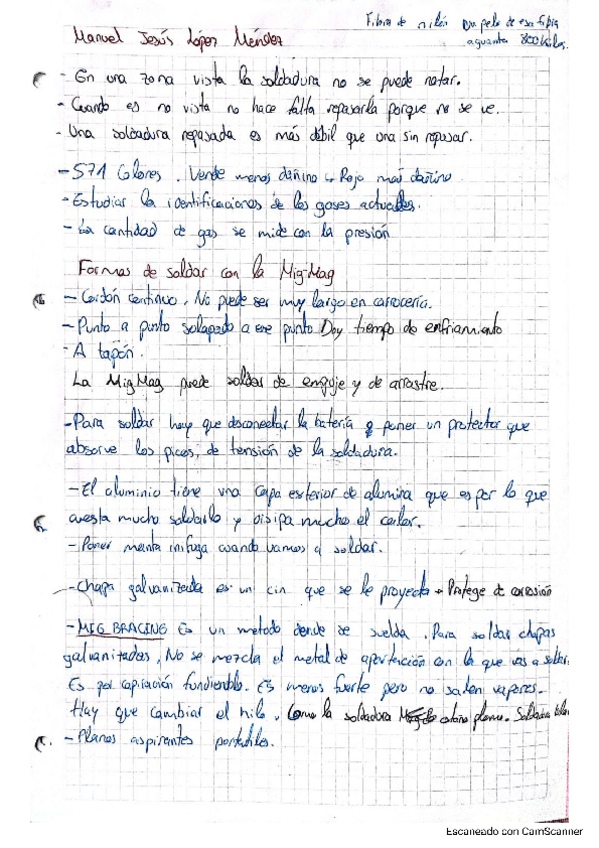 Manuel Jesús López Méndez
Fibra de nilón un pelo de esa fibra
aguanta 800 kilos.
- En una zona vista la soldadura no se puede notar.
- Cuando es no vista no hace falta repasarla porque no se ve.
- Una soldadura repasada es más débil que una sin repasar.
- S71 Colores. Verde menos dañino Rojo mas dañino
- Estudiar la identificaciones de los gases actuales.
- La cantidad de gas se mide con la presión
Formas de soldar con la Mig-Mag
- Cordón continuo. No puede ser muy largo en carrocería.
- Punto a punto solapado a ese punto Doy tiempo de enfriamiento
- A tapón.
La MigMag puede soldar de empuje y de arrastre.
- Para soldar hay que desconectar la batería poner un protector que
absorve los picos, de tensión de la soldadura.
- El aluminio tiene una capa exterior de alumina que es por lo que
cuesta mucho soldarlo y disipa mucho el calor.
- Poner manta inifuga cuando vamos a soldar.
- Chapa galvanizada es un cin que se le proyecta Protege de corrosión
- MIG BRACING Es un metodo donde se suelda. Para soldar chapas
galvanitadas, No se mezcla el metal de aportación con la que vas a soldar.
Es por capilación fundiendolo. Es menos fuerte pero no salen vapores.
Hay que cambiar el hilo. Como la soldadura estaño plomo. Soldadura
- Planos aspirantes portatiles.
Escaneado con CamScanner